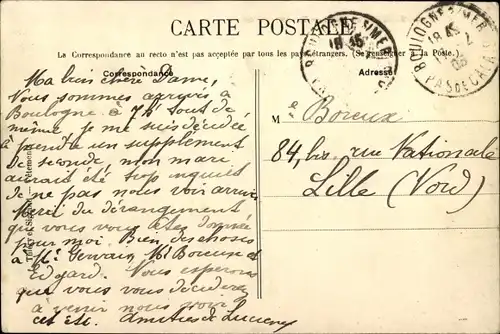 CARTE POSTALE
La Correspondance au recto n'est pas acceptée par tous les pays étrangers. (Se renseigner à la Poste.)
Correspondance
Adresse
BOULOGNE S/MER
PAS DE CALAIS
Ma bien chère Dame,
Vous sommes arrivés à
Boulogne à 7h½ tout de
même, je me suis décidée
à prendre un supplément
de seconde, mon mari
aurait été trop inquiet
de ne pas nous voir arriver
Merci du dérangement
que vous vous êtes donnée
pour moi. Bien des choses
à Mr Gervais, Mr Boreux et
Edgard. Nous espérons
que vous vous déciderez
à venir nous voir
cet été. Amitiés de Lucienne
Me Boreux
84, bis rue Nationale
Lille (Nord)